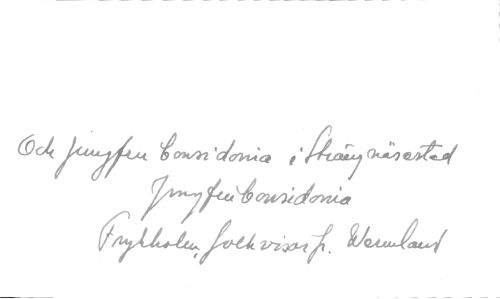 Och jungfun Considonia i Skängnäsestad
Jungfun Considonia
Frykholm, folkvisor fr. Wermland